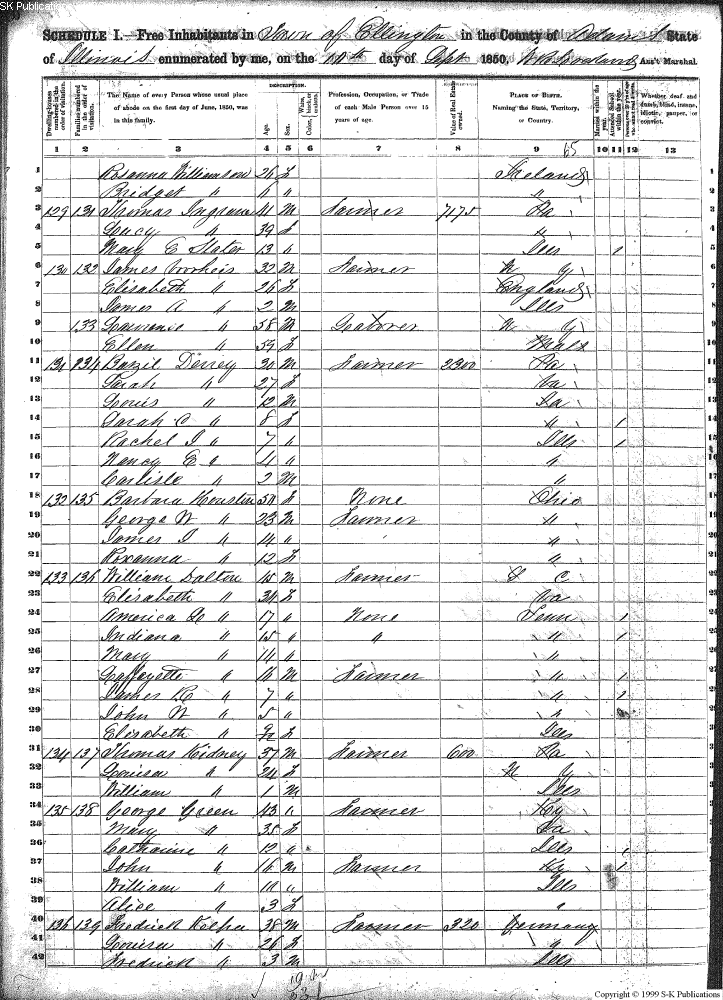 SK Publications
SCHEDULE I.—Free Inhabitants in Town of Ellington in the County of Adams State
of Illinois enumerated by me, on the 10th day of Sept 1850. Ass't Marshal
Dwelling-houses numbered in the order of visitation.
Families numbered in the order of visitation.
The Name of every Person whose usual place of abode on the first day of June, 1850, was in this family.
DESCRIPTION.
Age.
Sex.
Color, White, black, or mulatto.
Profession, Occupation, or Trade of each Male Person over 15 years of age.
Value of Real Estate owned.
PLACE OF BIRTH. Naming the State, Territory, or Country.
Married within the year.
Attended School within the year.
Whether deaf and dumb, blind, insane, idiotic, pauper, or convict.
1 2 3 4 5 6 7 8 9 10 11 12 13
65
1 Rosanna Williamson 26 f Ireland 1
2 Bridget " 6 " " 2
3 129 131 Thomas Ingram 41 M Farmer 7175 Pa 3
4 Lucy " 39 f " 4
5 Mary E Slater 13 " Ills 1 5
6 130 132 James Voorheis 32 M Farmer N Y 6
7 Elisabeth " 26 f England 7
8 James A " 2 M Ills 8
9 133 Lawrence " 58 M Labover N Y 9
10 Ellen " 59 f 10
11 131 134 Bazil 30 M Farmer 2300 Pa 11
12 Sarah " 27 f Va 12
13 Louis " 12 M Pa 13
14 Sarah C " 8 f " 1 14
15 Rachel J " 7 " Ills 1 15
16 Nancy E " 4 " " 16
17 Carlisle " 2 M " 17
18 132 135 Barbara Houston 50 f None Ohio 18
19 George W " 23 M Farmer " 19
20 James J " 14 " " 20
21 Roxanna " 12 f " 21
22 133 136 William Dalton 45 M Farmer C 22
23 Elisabeth " 34 f Va 23
24 America " 17 " None Tenn 1 24
25 Indiana " 15 " " " 1 25
26 Mary " 14 " " 26
27 Laffayette " 16 M Farmer " 1 27
28 James R " 7 " " 1 28
29 John W " 5 " " 29
30 Elisabeth " Ills 30
31 134 137 Thomas Kidney 37 M Farmer 600 Pa 31
32 Louisa " 24 f N Y 32
33 William " 1 M Ills 33
34 135 138 George Green 43 " Farmer Ky 34
35 Mary " 35 f Va 35
36 Catharine " 12 " Ills 1 36
37 John " 16 M Farmer Ky 1 37
38 William " 10 " Ills 38
39 Alice " 3 f " 39
40 136 139 Fredrick 38 M Farmer 320 Germany 40
41 Louisa " 26 f " 41
42 Fredrick " 3 M Ills 42
Copyright © 1999 S-K Publications